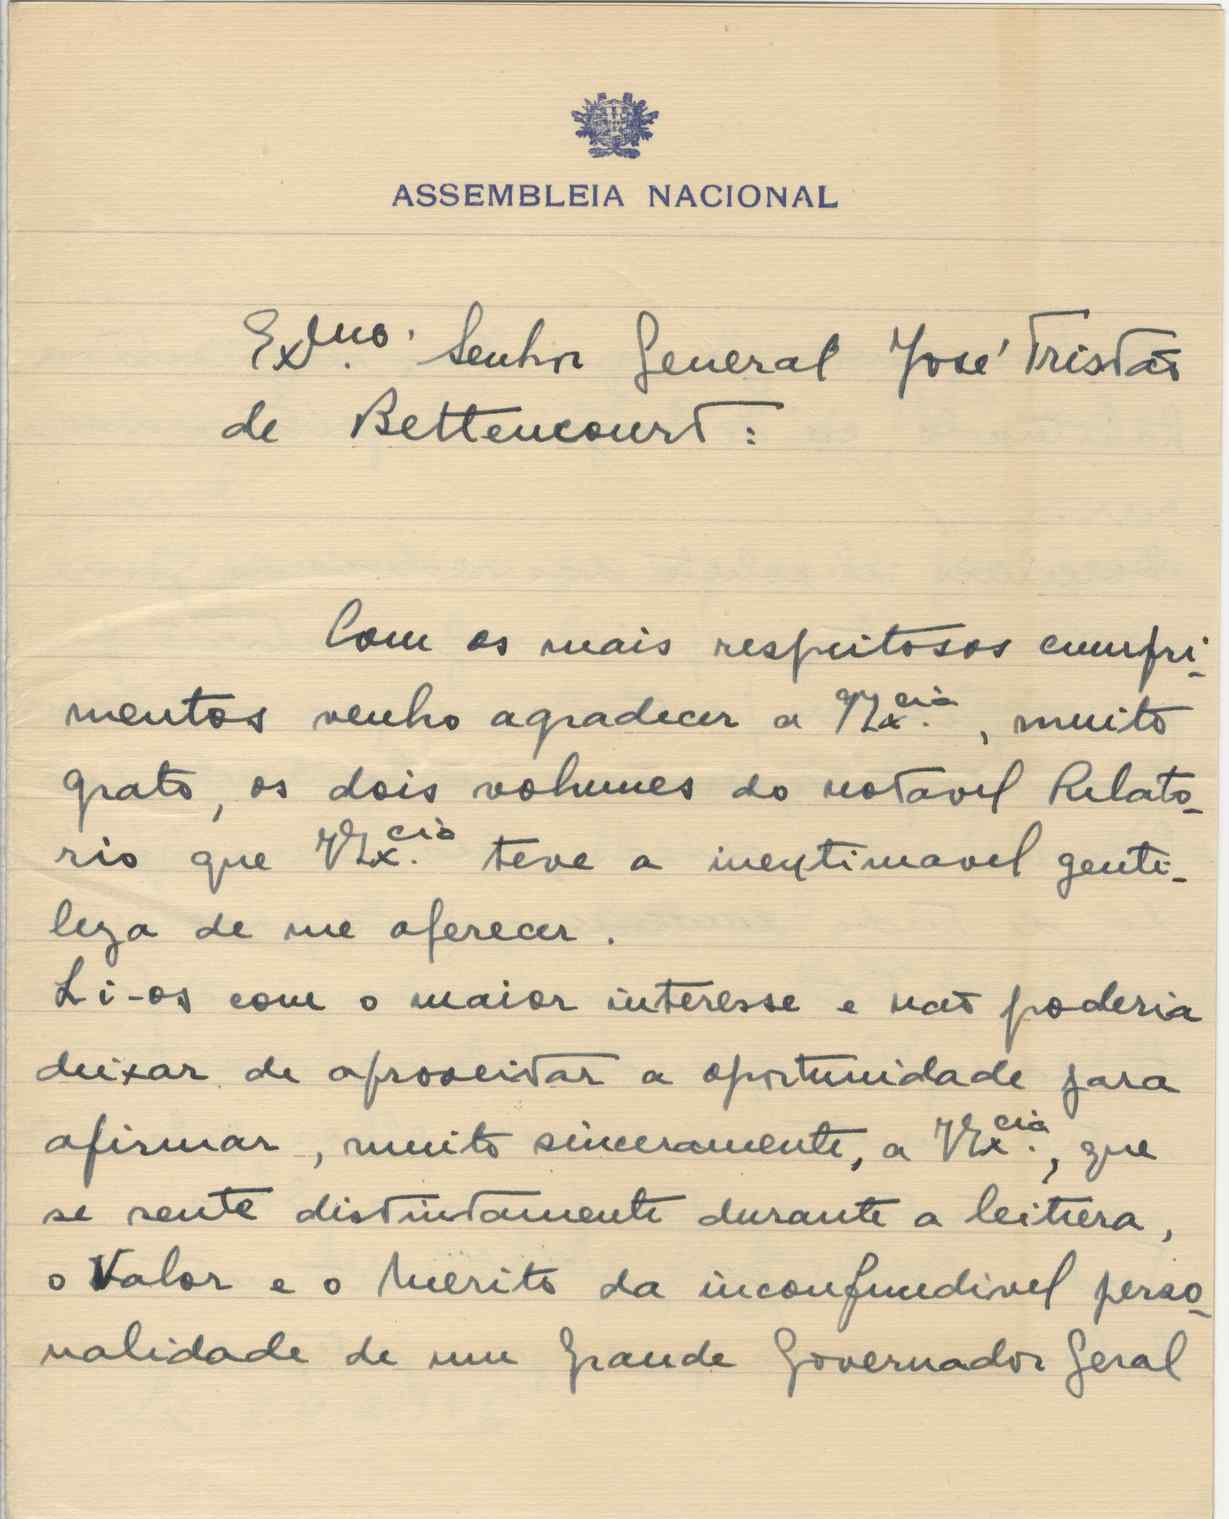 ASSEMBLEIA NACIONAL
Exmo. Senhor General José Tristão
de Bettencourt:
Com os mais respeitosos cumpri-
mentos venho agradecer a VEx.cia, muito
grato, os dois volumes do notavel Relato-
rio que VEx.cia teve a inextimavel genti-
leza de me oferecer.
Li-os com o maior interesse e não poderia
deixar de aproveitar a oportunidade para
afirmar, muito sinceramente, a VEx.cia, que
se sente distintamente durante a leitura,
o Valor e o Merito da inconfundivel perso-
nalidade de um Grande Governador Geral